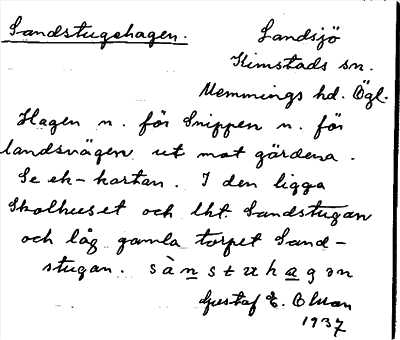 Sandstugehagen.
Landsjö
Kimstads sn.
Memmings hd. Ögl.
Hagen n. för Snippen n. för
landsvägen ut mot gärdena.
Se ek-kartan. I den ligga
Skolhuset och lht. Sandstugan
och låg gamla torpet Sand-
stugan. sànstuhagən
Gustaf E. Olsson
1937